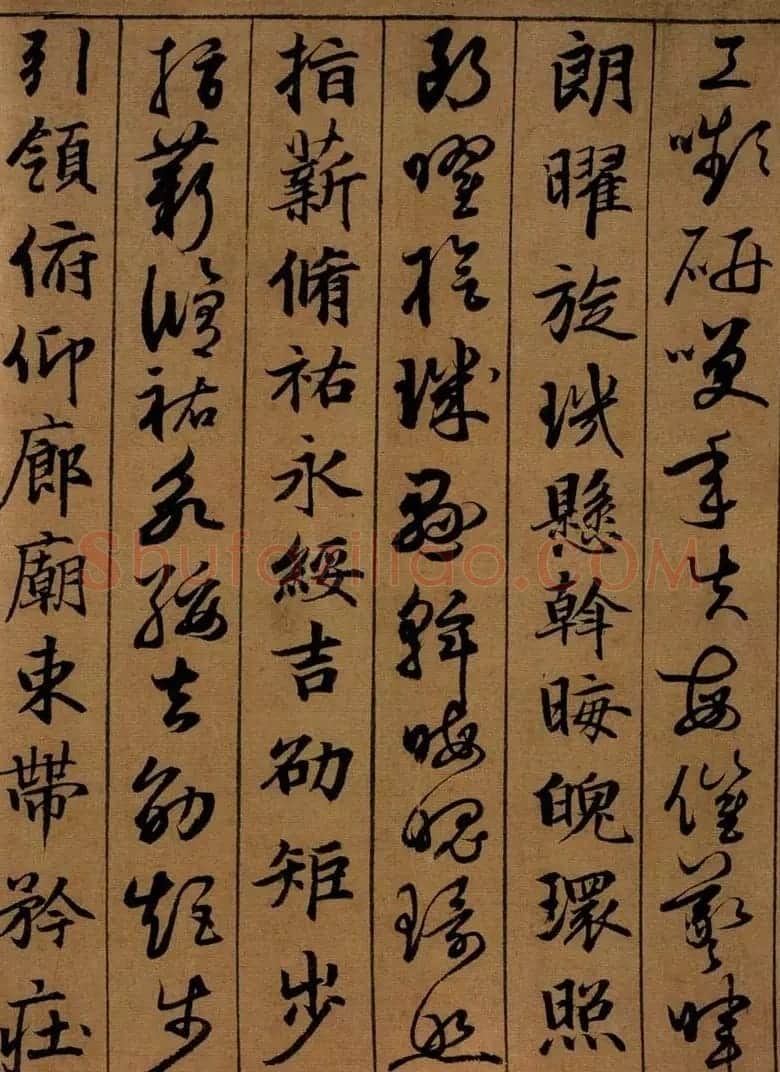 工嚬研唉年矢每催羲暉
朗曜旋璣懸斡晦魄環照
朗曜旋璣懸斡晦魄環照
指薪脩祐永綏吉劭矩步
指薪脩祐永綏吉劭矩步
引領俯仰廊廟束帶矜莊
shufaziliao.COM